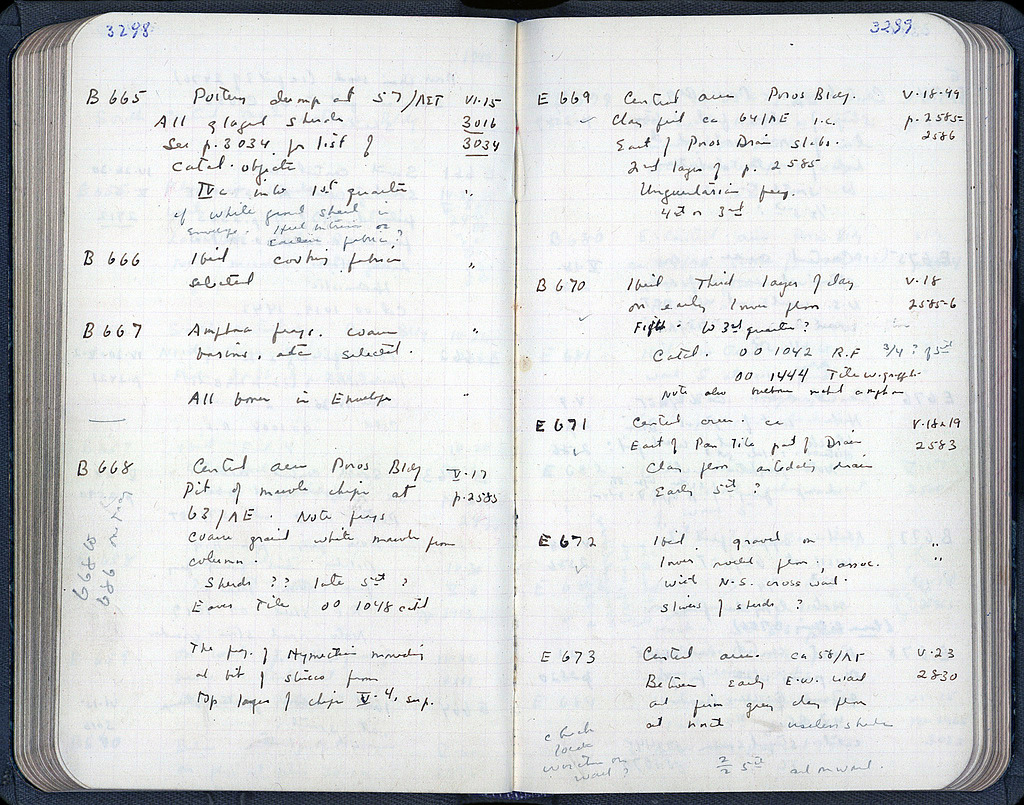 3298
B 665 Pottery dump at 57/ΛΣΤ VI-15
All glazed sherds 3016
See p. 3034 for list of 3034
catal. objects
IV c. into 1st quarter "
cf white ground sherd in
Envelope.
Eastern fabric?
B 666 Ibid cooking fabrics "
selected
B 667 Amphora frags. coarse "
basins, etc selected.
All bones in Envelope "
B 668 Central area Poros Bldg V-17
Pit of marble chips at p. 2585
63/ΛE. Note frags
coarse grained white marble from
column.
Sherds ?? late 5th ?
Eaves Tile OO 1048 catd
668 to
686 on
The frag. of Hymettian moulding
at bit of stucco from
top layer of chips V-4, sup.
3299
E 669 Central area Poros Bldg. V-18-49
Clay fill ca 64/ΛE i.c. p. 2585-
East of Poros Drain slabs. 2586
2nd layer of p. 2585
Unguentarium frag.
4th or 3rd
B 670 Ibid Third layer of clay V-18
on early lower floor 2585-6
to 3rd quarter?
Catal. OO 1042 R.F 3/4 ? of 5th
OO 1444 Tile w. graffito
Note also amphora
E 671 Central area. ca V-18-19
East of Pan Tile part of Drain 2583
Clay floor antedating drain
Early 5th ?
E 672 Ibid. gravel on "
lower floor, assoc. "
with N.S. cross wall.
slivers of sherds ?
E 673 Central area. ca 58/ΛΓ V-23
Between early E.W. wall 2830
at firm grey clay floor
at north useless sherds
check
book
wall?
2/2 5th and on wall.